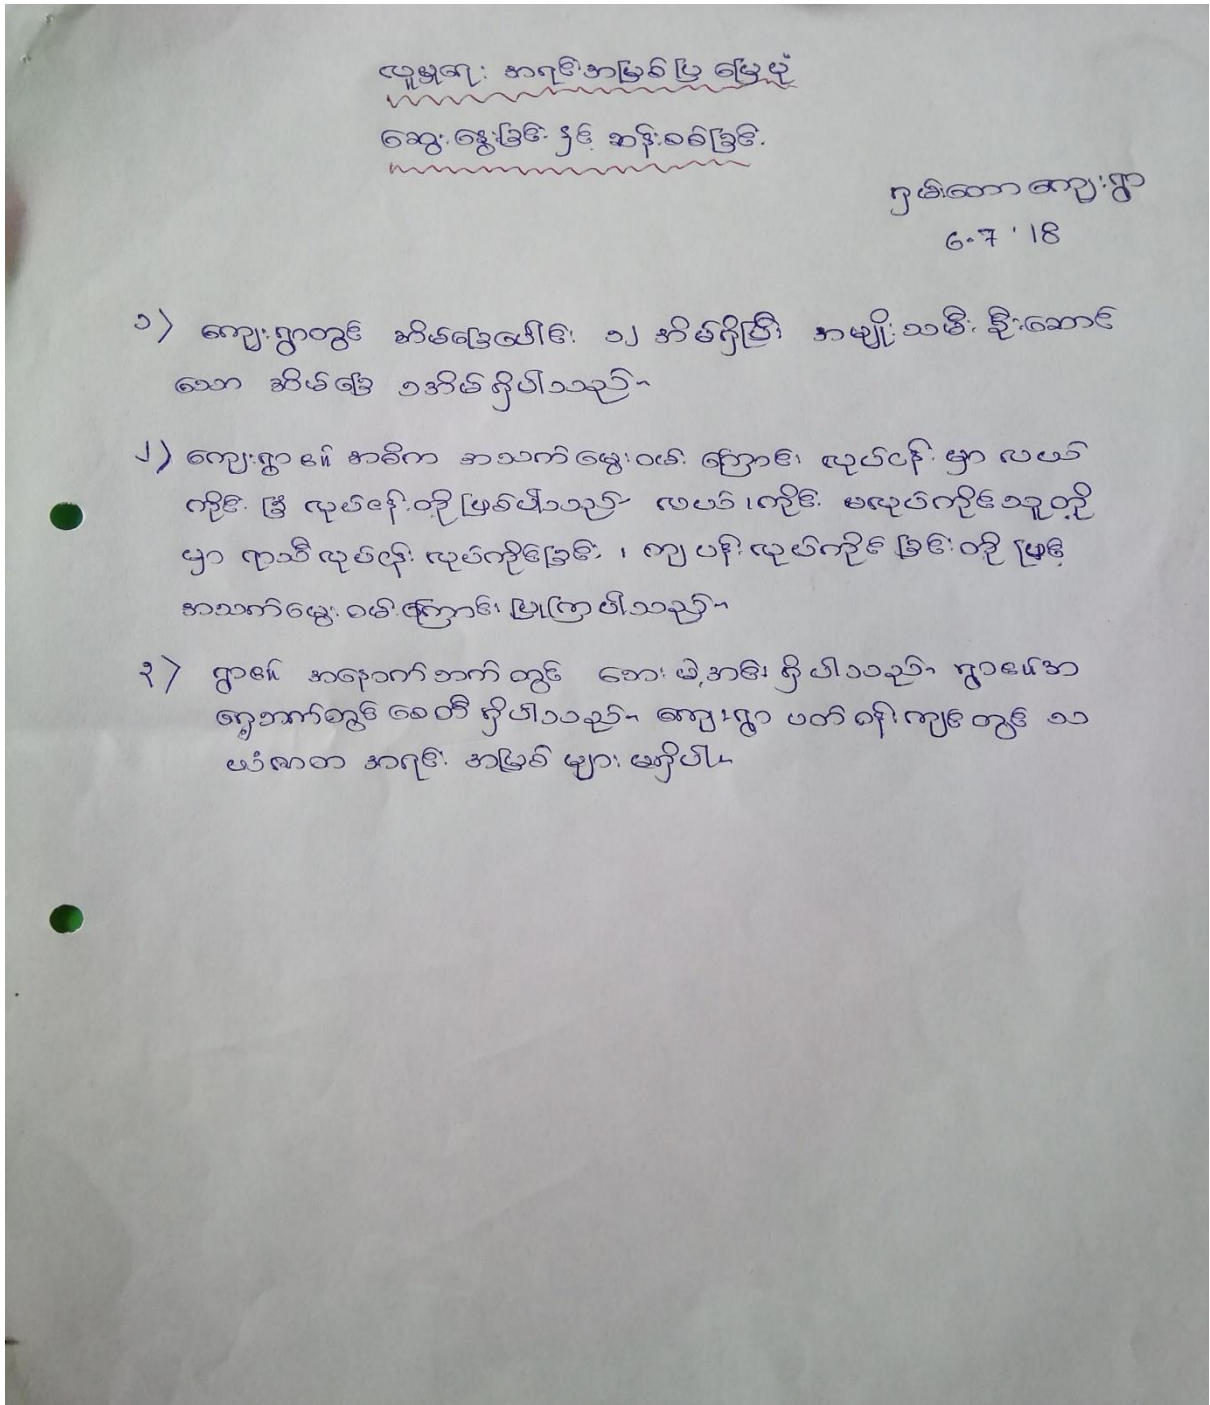 လူမှုရေး အရင်းအမြစ်ပြ မြေပုံ
ဆွေးနွေးခြင်း နှင့် ဆန်းစစ်ခြင်း
ရှမ်းတောကျေးရွာ
6.7 '18
၁) ကျေးရွာတွင် အိမ်ခြေပေါင်း ၁၂ အိမ်ရှိပြီး အမျိုးသမီး ဦးဆောင်
သော အိမ်ခြေ ၁အိမ်ရှိပါသည်။
၂) ကျေးရွာ၏ အဓိက အသက်မွေးဝမ်းကြောင်း လုပ်ငန်းမှာ လယ်
ကိုင်း ခြံ လုပ်ငန်းတို့ဖြစ်ပါသည်။ လယ်၊ကိုင်း မလုပ်ကိုင်သူတို့
မှာ ရာသီလုပ်ငန်း လုပ်ကိုင်ခြင်း ၊ ကျပန်းလုပ်ကိုင်ခြင်းတို့ဖြင့်
အသက်မွေးဝမ်းကြောင်းပြုကြပါသည်။
၃) ရွာ၏ အနောက်ဘက်တွင် ဘေးမဲ့အင်းရှိပါသည်။ ရွာ၏အ
ရှေ့ဘက်တွင် စေတီရှိပါသည်။ ကျေးရွာ ပတ်ဝန်းကျင်တွင် သ
ယံဇာတ အရင်းအမြစ်များ မရှိပါ။